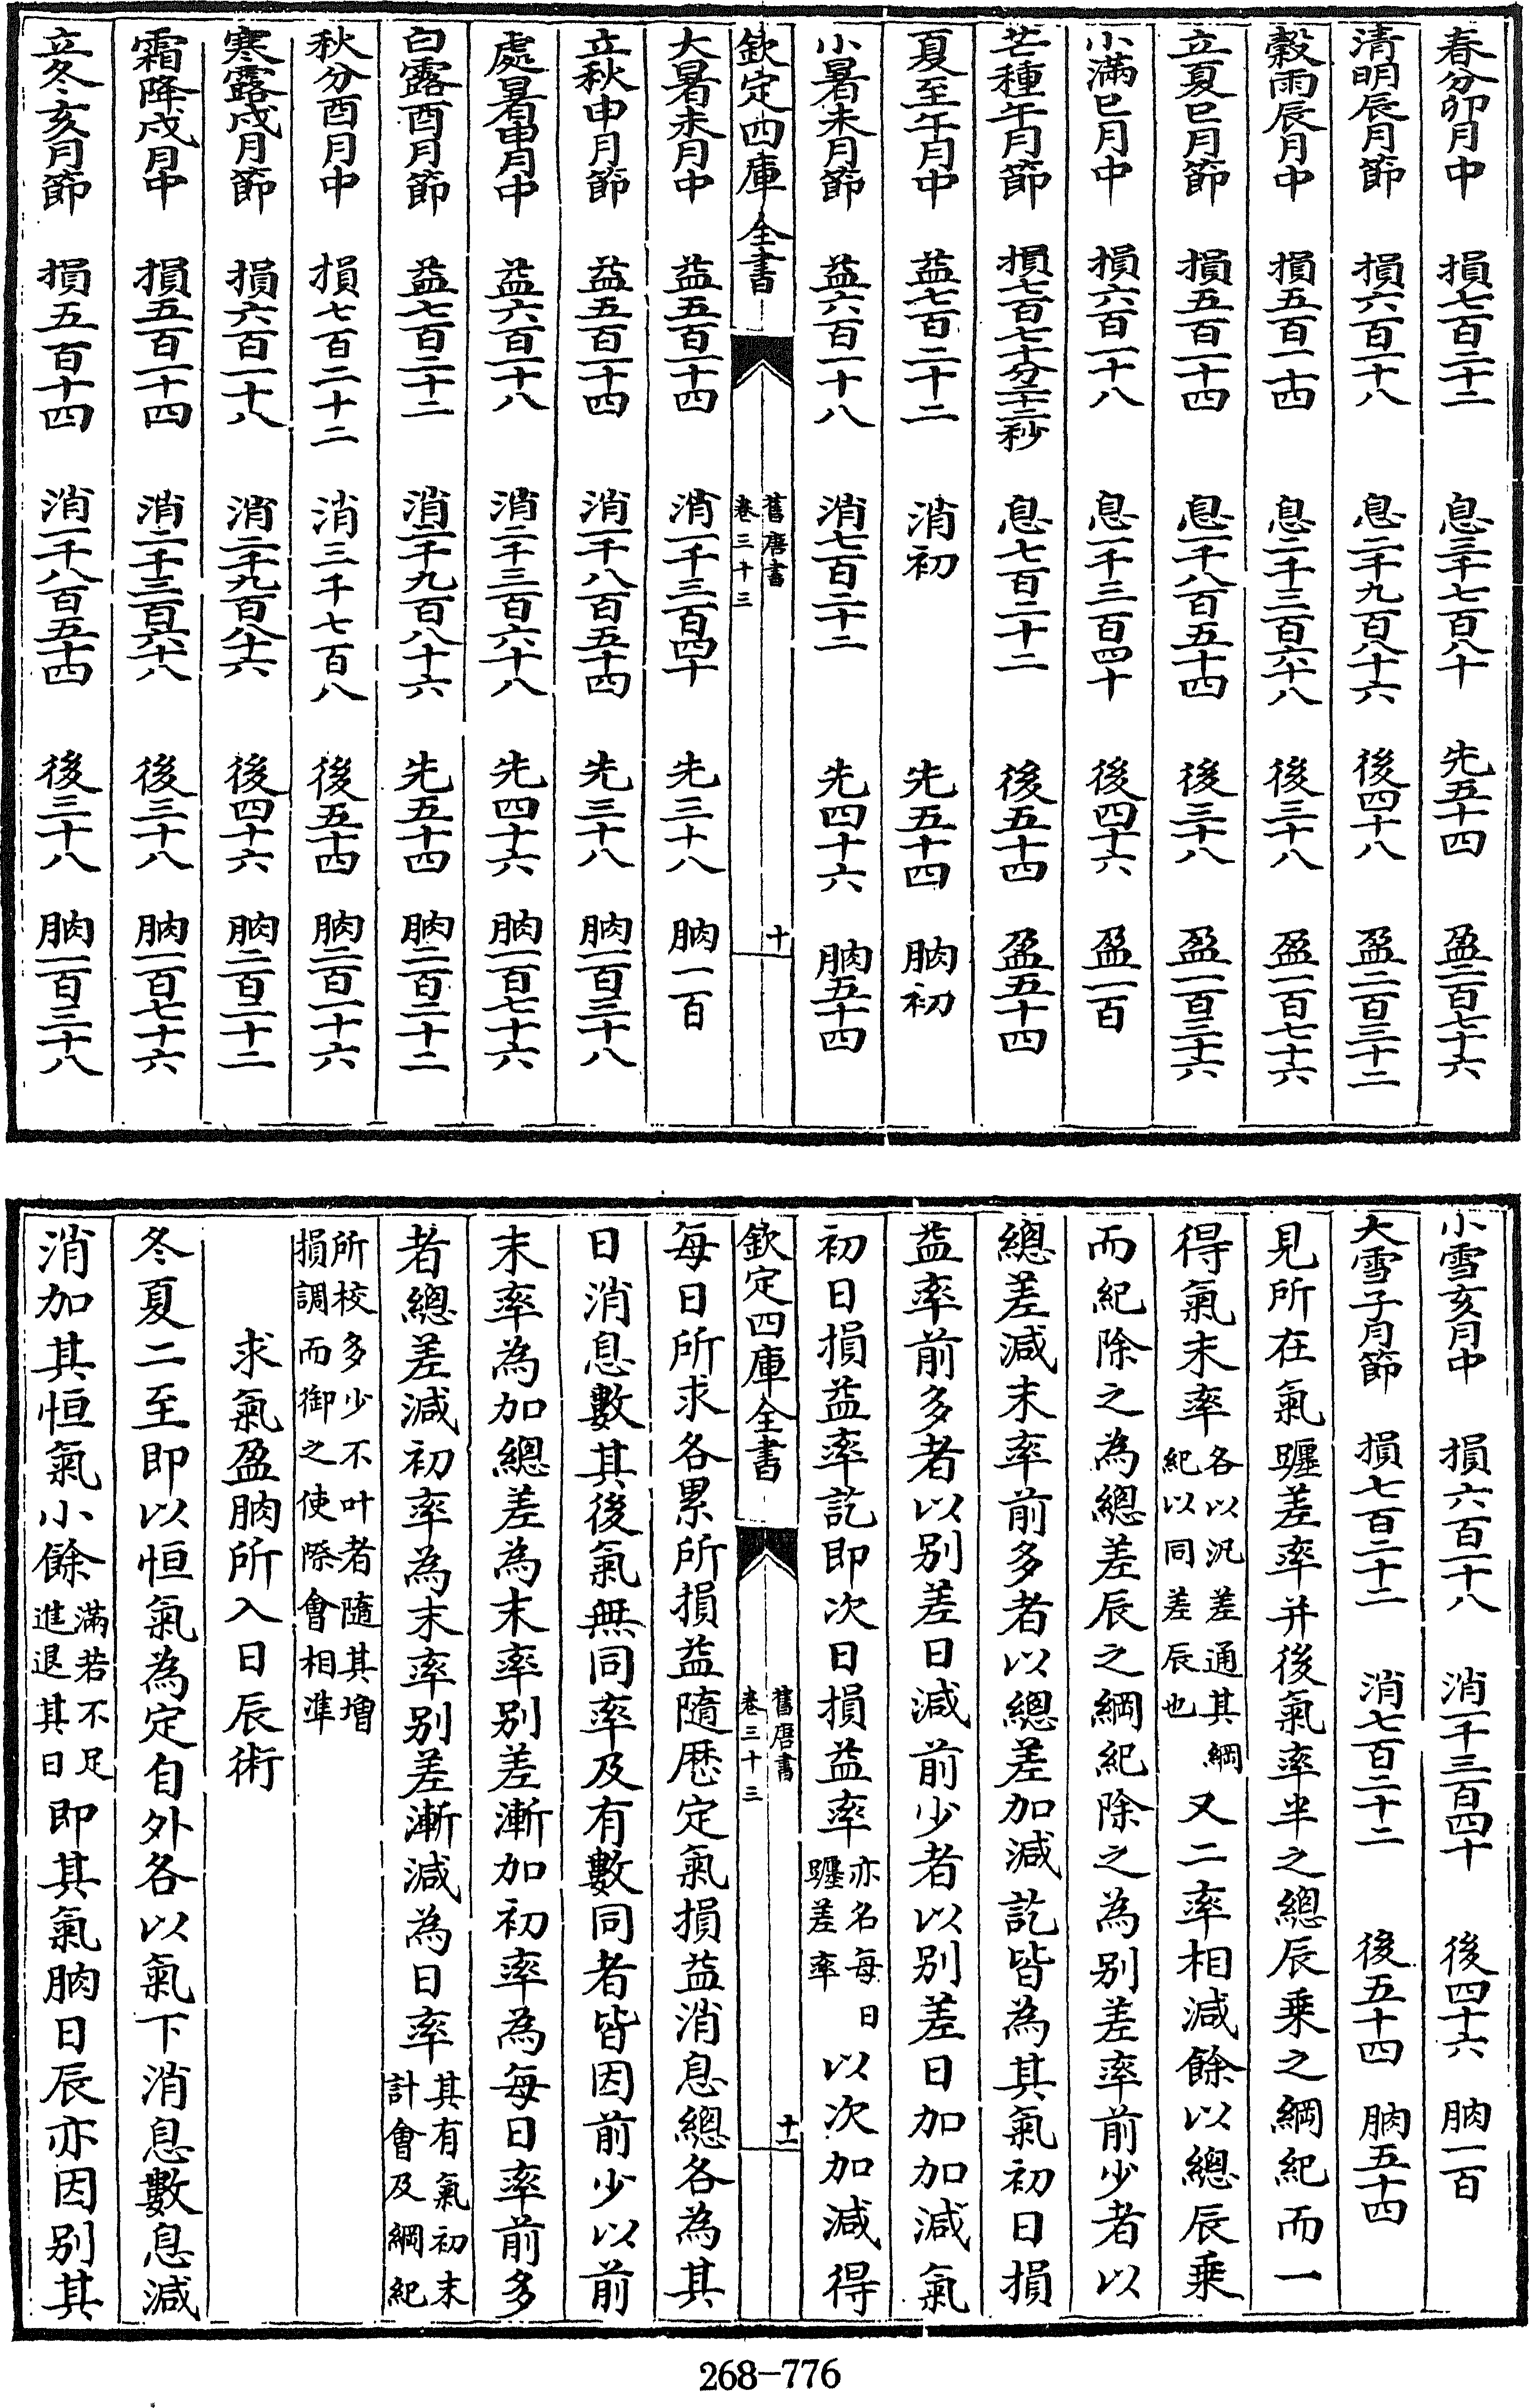 春分卯月中　損七百二十二　息三千七百八十　先五十四　盈二百七十六
清明辰月節　損六百一十八　息二千九百八十六　後四十八　盈二百三十二
穀雨辰月中　損五百一十四　息二千三百六十八　後三十八　盈一百七十六
立夏巳月節　損五百一十四　息一千八百五十四　後三十八　盈一百三十六
小滿巳月中　損六百一十八　息一千三百四十　後四十六　盈一百
芒種午月節　損七百七十分二十二秒　息七百二十二　後五十四　盈五十四
夏至午月中　益七百二十二　消初　先五十四　朒初
小暑未月節　益六百一十八　消七百二十二　先四十六　朒五十四
欽定四庫全書　舊唐書卷三十三　十
大暑未月中　益五百一十四　消一千三百四十　先三十八　朒一百
立秋申月節　益五百一十四　消一千八百五十四　先三十八　朒一百三十八
處暑申月中　益六百一十八　消二千三百六十八　先四十六　朒一百七十六
白露酉月節　益七百二十二　消二千九百八十六　先五十四　朒二百二十二
秋分酉月中　損七百二十二　消三千七百八　後五十四　朒二百一十六
寒露戌月節　損六百一十八　消二千九百八十六　後四十六　朒二百二十二
霜降戌月中　損五百一十四　消二千三百六十八　後三十八　朒一百七十六
立冬亥月節　損五百一十四　消一千八百五十四　後三十八　朒一百三十八
小雪亥月中　損六百一十八　消一千三百四十　後四十六　朒一百
大雪子月節　損七百二十二　消七百二十二　後五十四　朒五十四
見所在氣躔差率并後氣率半之總辰乘之綱紀而一
得氣末率各以汎差通其綱紀以同差辰也又二率相減餘以總辰乘
而紀除之為總差辰之綱紀除之為别差率前少者以
總差減末率前多者以總差加減訖皆為其氣初日損
益率前多者以别差日減前少者以别差日加加減氣
初日損益率訖即次日損益率亦名每日躔差率以次加減得
欽定四庫全書　舊唐書卷三十三　十一
每日所求各累所損益隨厯定氣損益消息總各為其
日消息數其後氣無同率及有數同者皆因前少以前
末率為加總差為末率别差漸加初率為每日率前多
者總差減初率為末率别差漸減為日率其有氣初末計會及綱紀
所校多少不叶者隨其增損調而御之使際會相準
求氣盈朒所入日辰術
冬夏二至即以恒氣為定自外各以氣下消息數息減
消加其恒氣小餘滿若不足進退其日即其氣朒日辰亦因别其
268-776